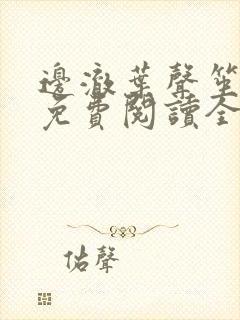 邊澈葉聲笙
免費閱讀全
佑聲